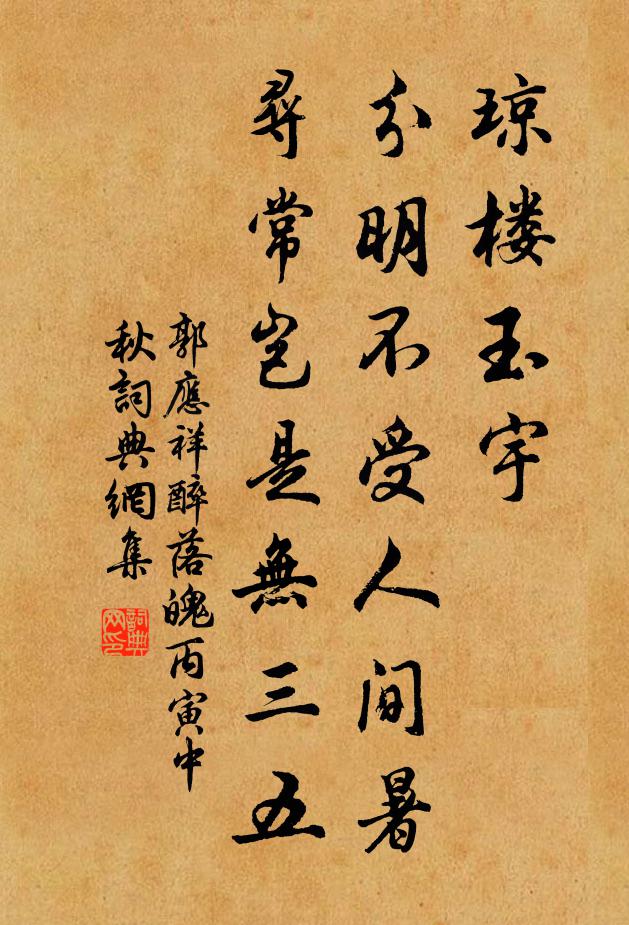 琼楼玉宇
分明不受人间暑
尋常岂是無三五
郭應祥醉落魄丙寅中
秋詞典網集
詞典网印